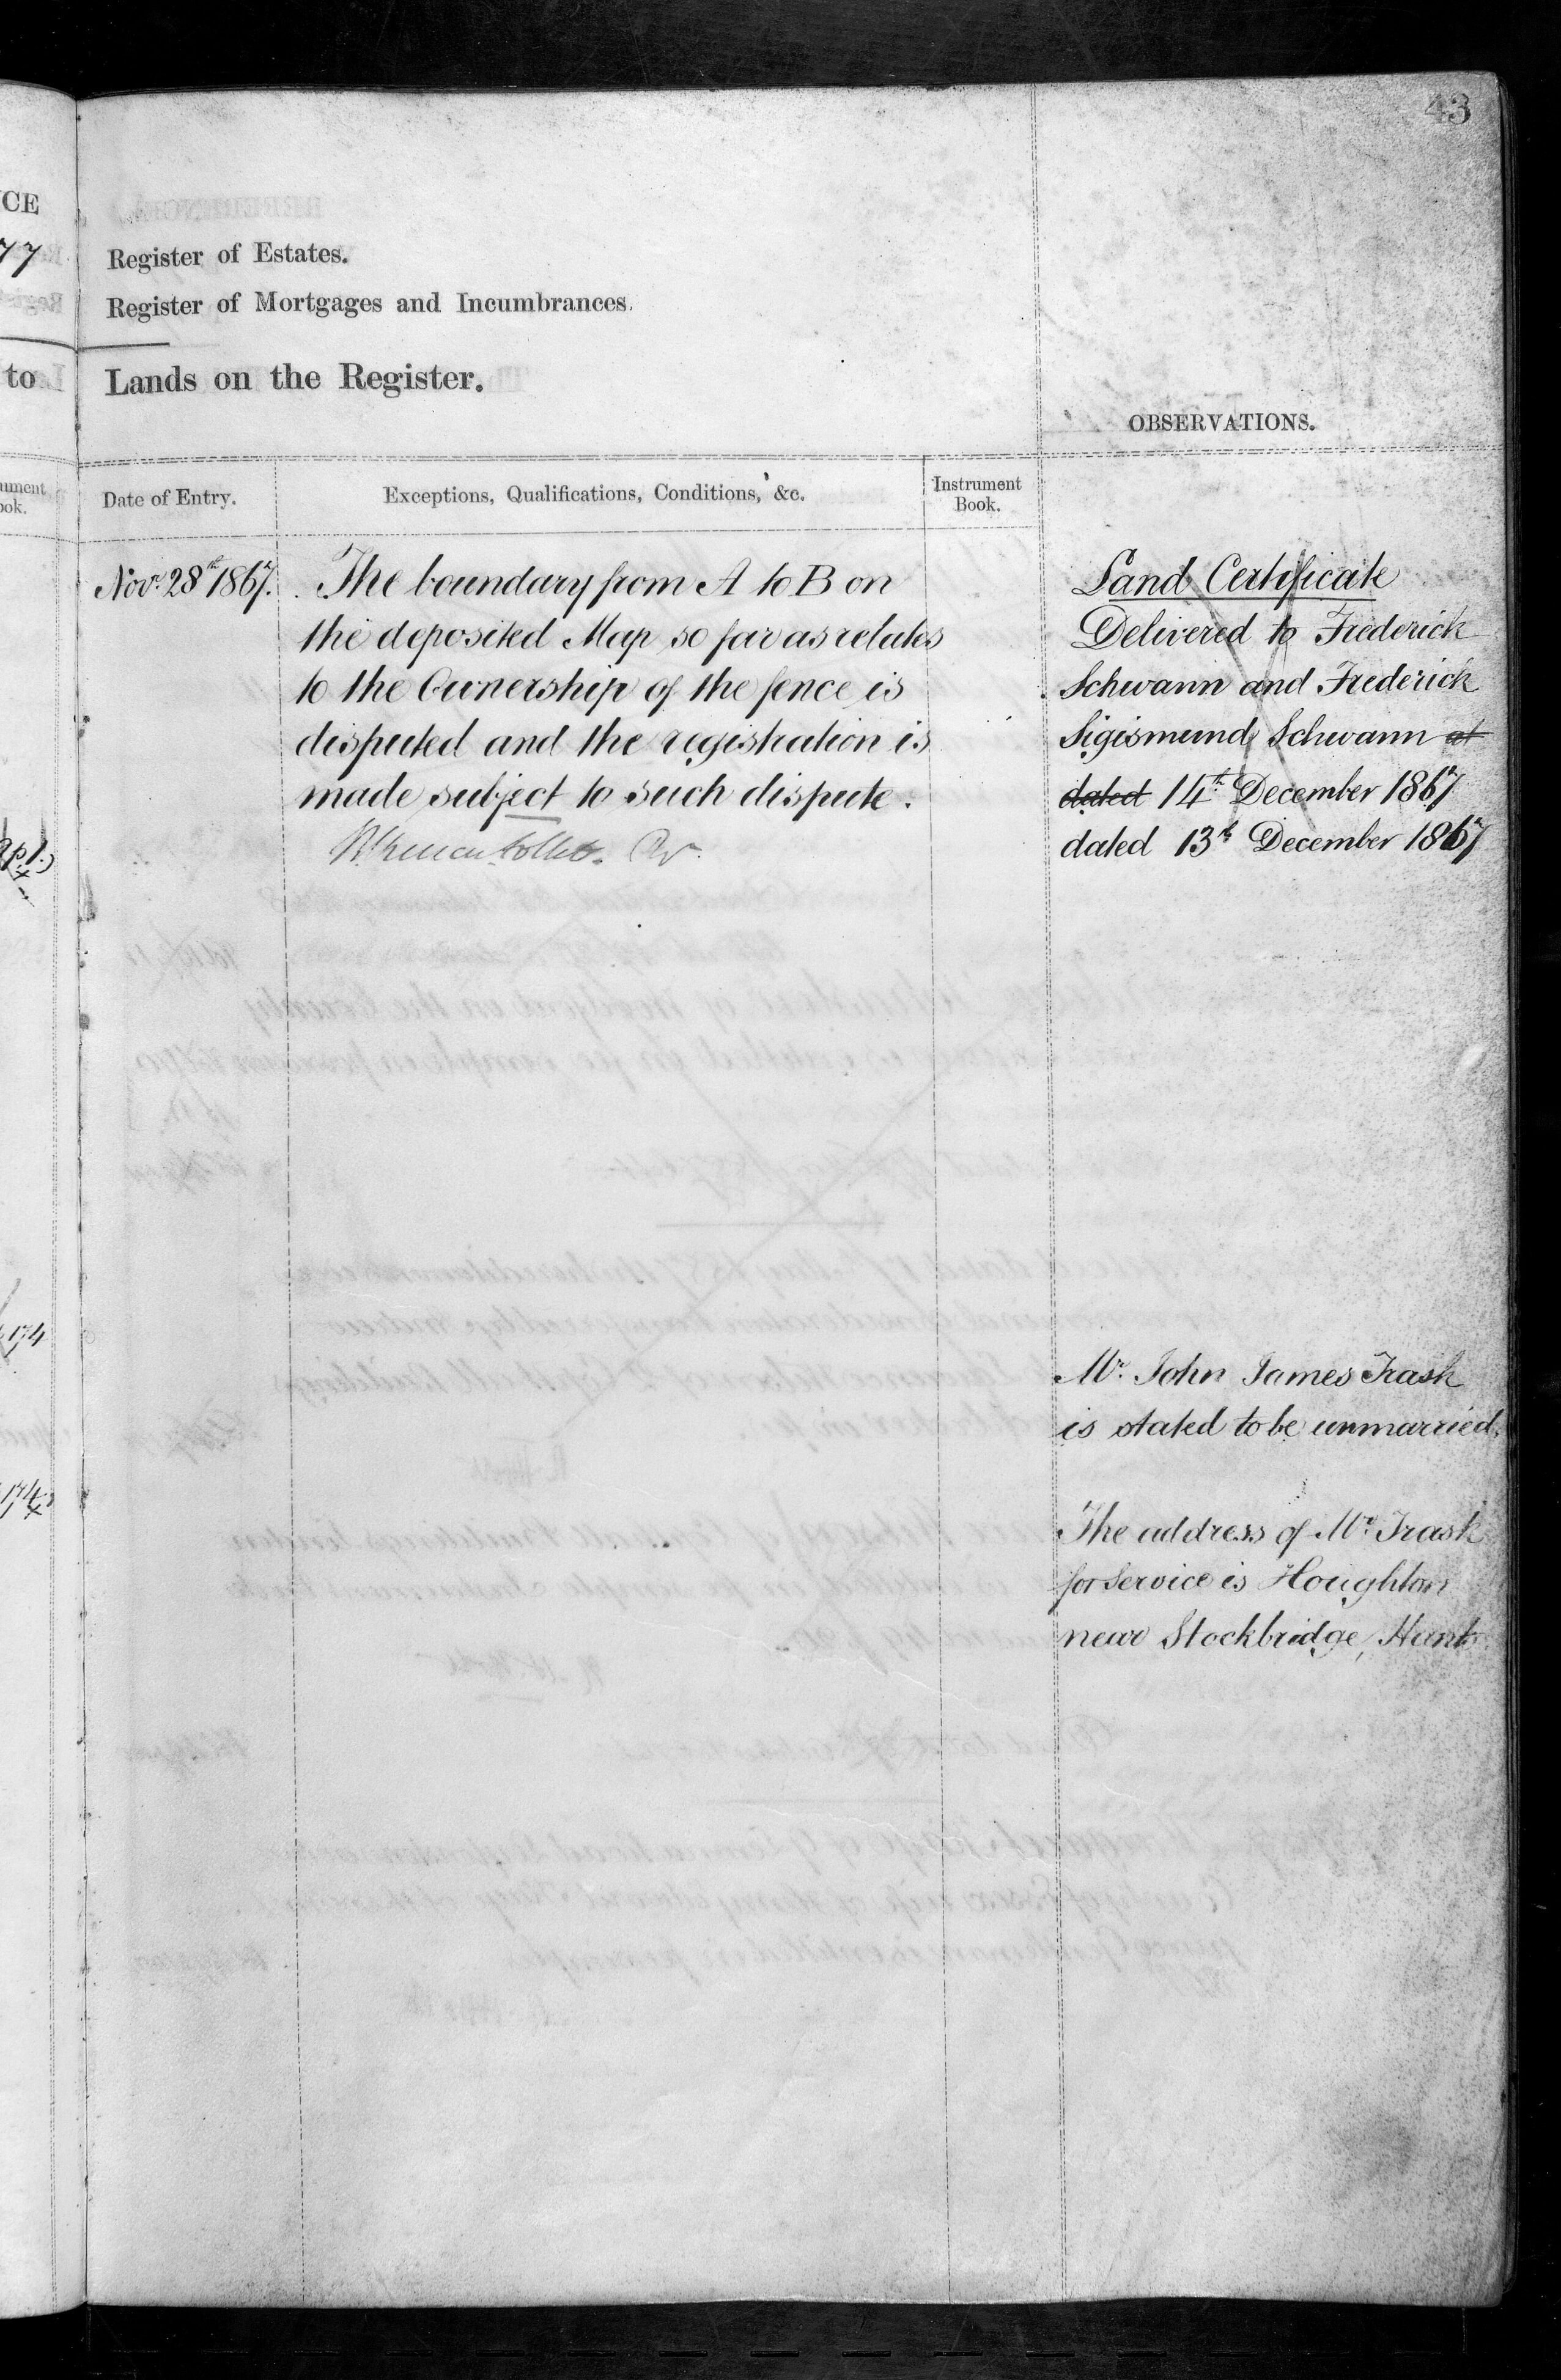 43
CE
77
Register of Estates.
Register of Mortgages and Incumbrances.
to
Lands on the Register.
OBSERVATIONS.
Date of Entry.
Exceptions, Qualifications, Conditions, &c.
Instrument
Book.
Novr. 28th 1867.
The boundary from A to B on
the deposited Map so far as relates
to the Ownership of the fence is
disputed and the registration is
made subject to such dispute.
Land Certificate
Delivered to Frederick
Schwann and Frederick
Sigismund Schwann at
dated 14th December 1867
dated 13th December 1867
Mr. John James Trask
is stated to be unmarried.
The address of Mr. Trask
for Service is Houghton
near Stockbridge, Hants
174
174